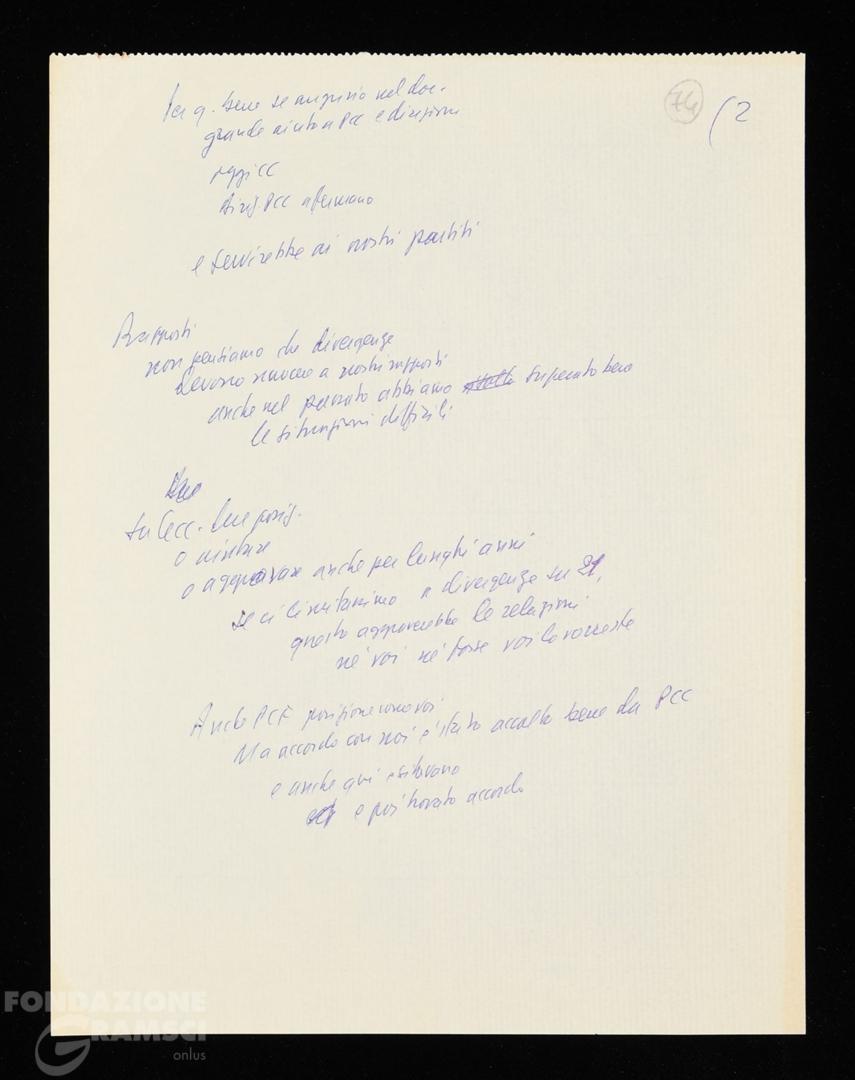 74
(2
Per q. bene se auguri nel doc.
grande aiuto a PCC e direzioni
oggi CC
dirig PCC affermano
e servirebbe ai nostri partiti
Rapporti
non pensiamo che divergenze
devono nuocere a nostri rapporti
anche nel passato abbiamo superato bene
le situazioni diffizili
Due
su Cecc. due posiz.
o aiutare
o aggravare anche per lunghi anni
se ci limitassimo a divergenze su 21,
questo aggraverebbe le relazioni
né voi né forse voi lo vorreste
Anche PCF posizione come voi
Ma accordo con noi è stato accolto bene da PCC
e anche qui esitavano
e poi trovato accordo
FONDAZIONE
GRAMSCI
onlus